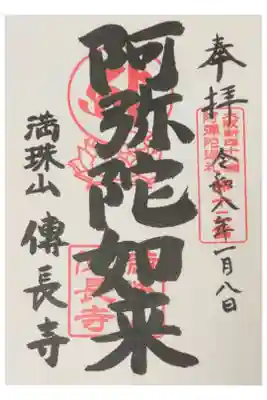 奉拝
令和八年一月八日
阿弥陀如来
満珠山 傳長寺